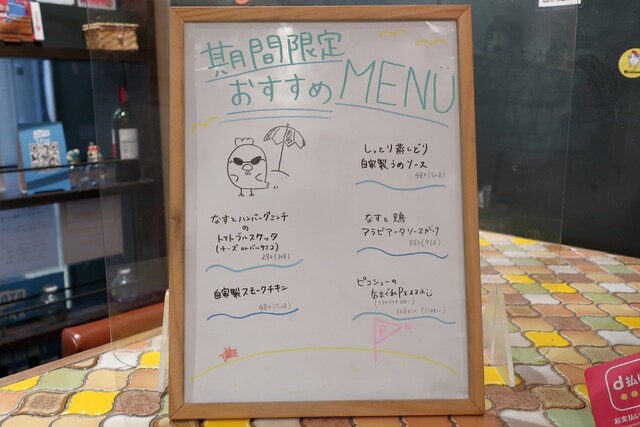 期間限定
おすすめ MENÜ
しっとり蒸しどり
自家製うめソース
480(528)
なすとハンバーグミンチ
の
トマトブルスケッタ
(チーズ or バルサミコ)
280(308)
なすと鶏
アラビアータソースがけ
880(968)
自家製スモークチキン
480(528)
ピコシューの
気まぐれPizza
1080～
P
d払い
お支払い